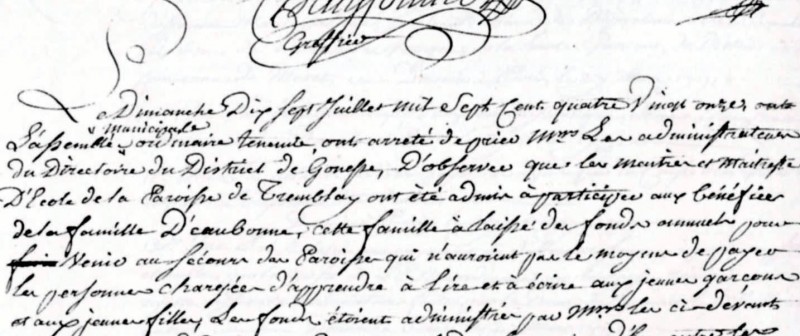 Greffier
Le Dimanche Dix Sept Juillet mil Sept Cent quatre Vingt onze, ont
municipale
L'assemblée ordinaire tenante, ont arreté de prier Mrs Les administrateurs
du Directoire du District de Gonesse, D'observer que les maitre et maitresse
D'Ecole de la Paroisse de Tremblay ont été admis à participer aux bénéfices
de la famille D'eaubonne, cette famille à laissé des fonds annuels pour
Venir au secours des Paroisse qui n'auroient pas le moyens de payer
les personnes chargées d'apprendre à lire et à écrire aux jeunes garcons
et aux jeunes filles, Les fonds étoient administré par Mrs les ci-devants